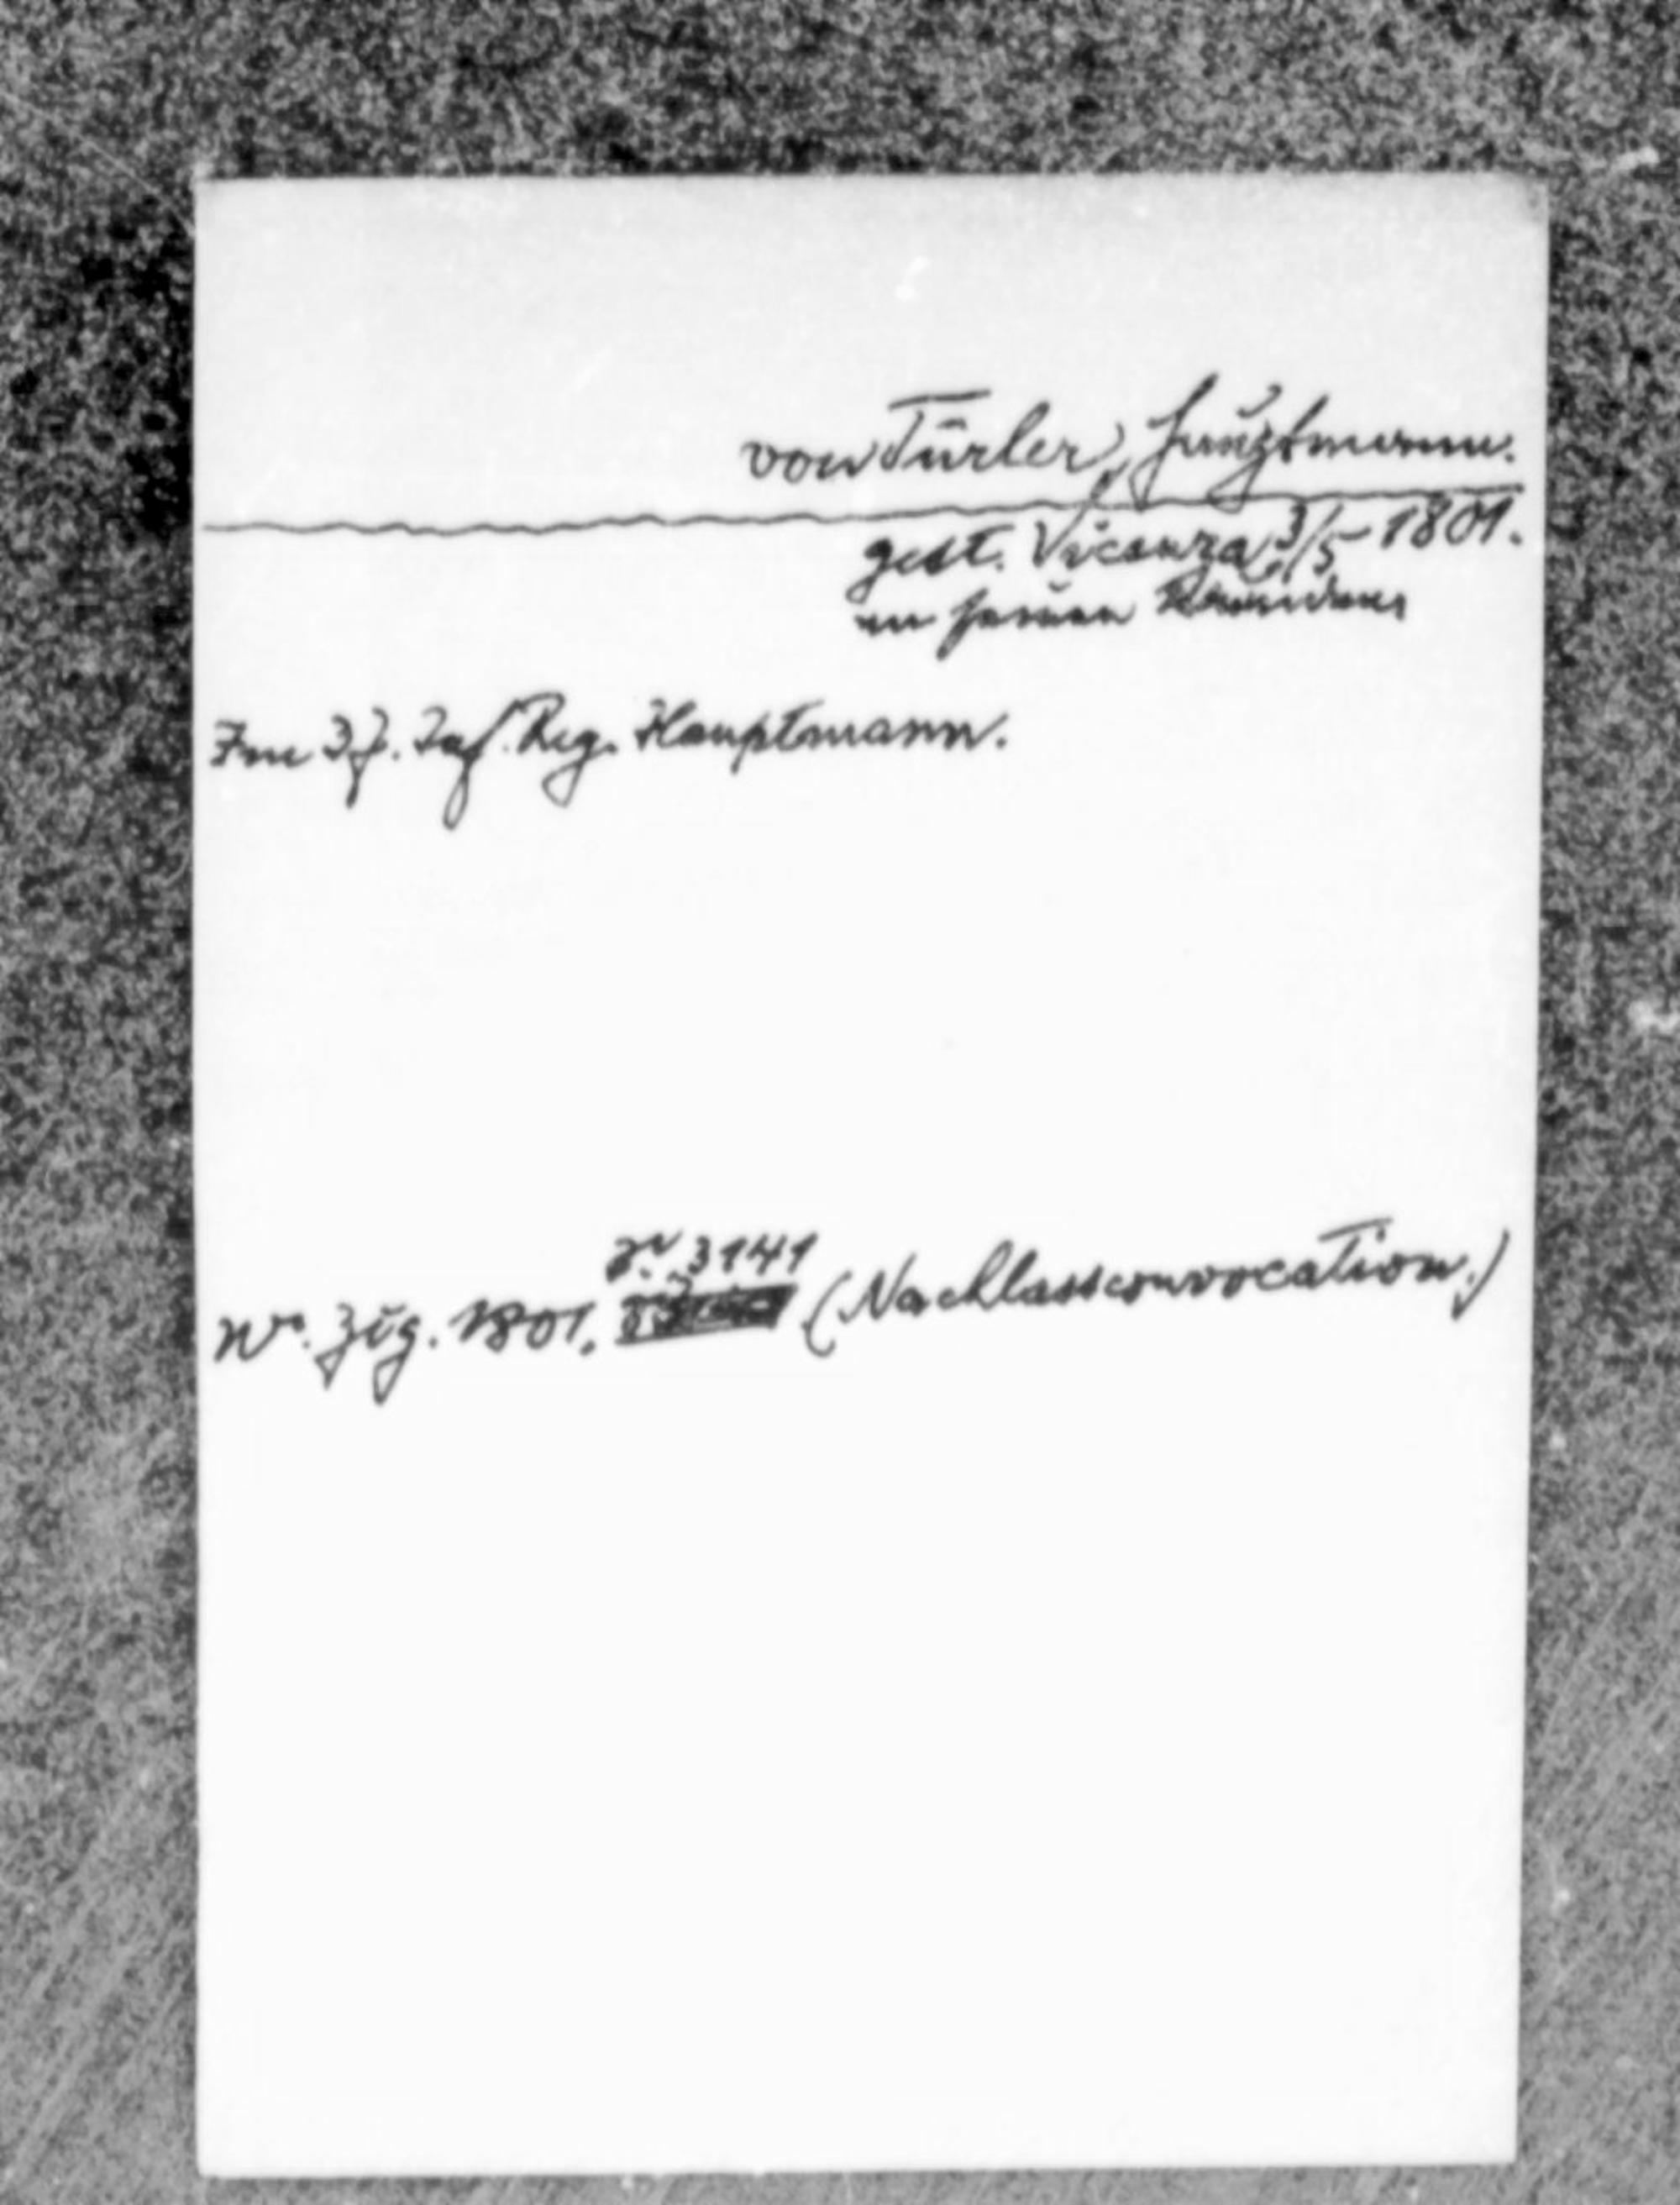 von Türler, Hauptmann.
gest. Vicenza 3/5 1801.
an seinen Wunden
Im 37. Inf. Reg. Hauptmann.
S. 3141
Wr. Ztg. 1801. (Nachlassconvocation.)